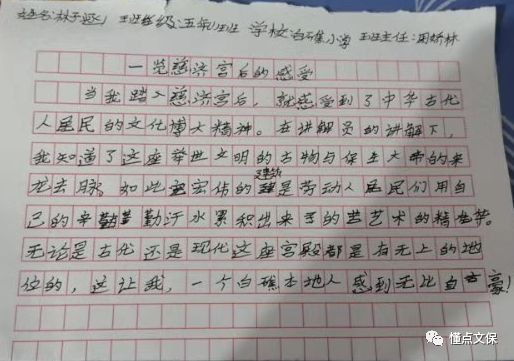 姓名:林子 班级:五年1班 学校白礁小学 班主任:周娇林
一览慈济宫后的感受
当我踏入慈济宫后，就感受到了中华古代
人居民的文化博大精神。在讲解员的讲解下，
我知道了这座举世文明的古物与保生大帝的来
建筑
龙去脉 如此宏伟的是劳动人居民们用自
己的辛勤汗水累积出来的艺术的精华。
无论是古代还是现代这座宫殿都是有无上的地
位的，这让我，一个白礁本地人感到无比自豪！
懂点文保